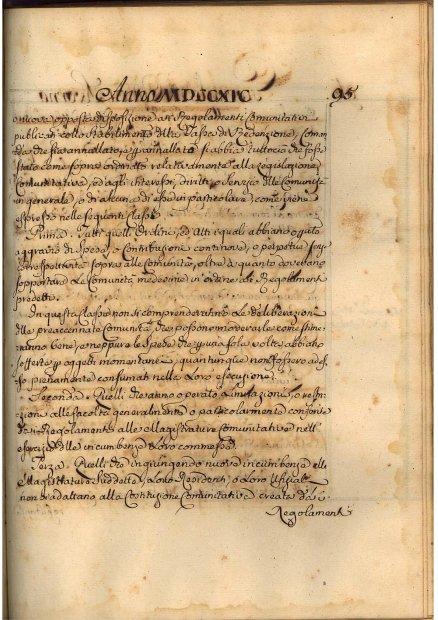 Anno MDCCXIC 95
nuova, opposta disposizione a i Regolamenti Comunitativi
publicati collo stabilimento della Tassa di Redenzione, coman
do che sia annullato, e p. annullato si abbia tuttociò che fosse
stato come sopra ordinato relativamente alla Legislazione
Comunitativa, ed agli interessi, diritti, e Servizio delle Comunità
in generale, o di alcuna di esse in particolare, come viene
espresso nelle seguenti Classi.
Prima. Tutti quelli Ordini, ed Atti i quali abbiano
aggravio di Spese, o Contribuzioni continove, o perpetue
corrispettività sopra alle Comunità, oltre a quanto dovevano
sopportare le Comunità medesime in ordine ai Regolamenti
predetti.
In questa Classe non si comprenderanno le deliberazioni
delle preaccennate Comunità che possono muoversi come stime
ranno bene, e neppure le Spese che p. una sola volta abbiano
sofferte p. oggetti momentanei, quantunque non fossero ades
so pienamente consumati nella loro esecuzione.
Seconda. Quelli che hanno operato Limitazioni, o restri
zioni alle facoltà generalmente o particolarmente conferite
dai Regolamenti alle Magistrature Comunitative nell'
esercizio delle incumbenze loro commesse.
Terza. Quelli che ingiungendo nuove incumbenze alle
Magistrature Suddette, a loro Residenti, o loro Ufiziali
non si adattano alla Costituzione Comunitativa creata dai
Regolamenti